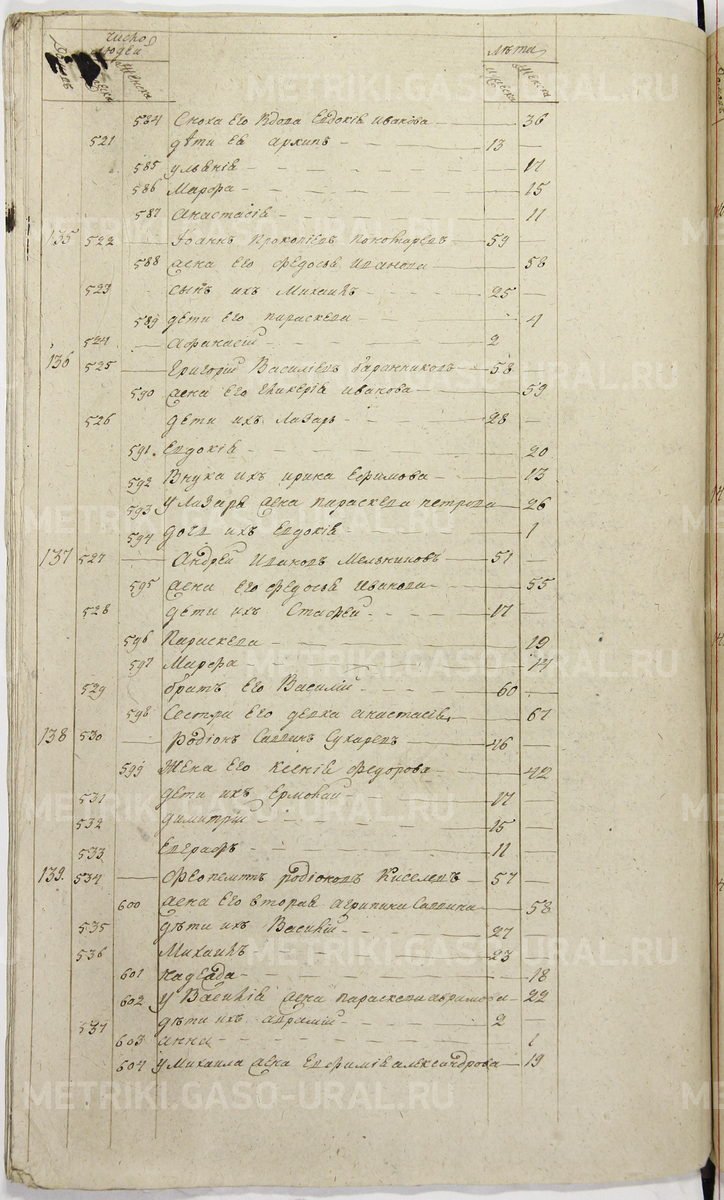 число людей лѣта
мужска женска
584 Сноха его вдова Евдокія Иванова 36
521 дѣти ея Архипъ 13
585 Ульянія 17
586 Марѳа 15
587 Анастасія 11
135 522 Іоаннъ Прокопіевъ Пономаревъ 59
588 жена его Ѳедосья Иванова 58
523 сынъ ихъ Михаилъ 25
589 дѣти его Параскева 4
524 Афанасій 2
136 525 Григорій Василіевъ Баранниковъ 58
590 жена его Гликерія Иванова 59
526 дѣти ихъ Лазарь 28
591 Евдокія 20
592 Внука ихъ Ирина Ефимова 13
593 У Лазаря жена Параскева Петрова 26
594 дочь ихъ Евдокія 1
137 527 Андрей Ивановъ Мельниковъ 51
595 жена его Ѳедосья Иванова 55
528 дѣти ихъ 17
596 Параскева 19
597 Марѳа 14
529 братъ его Василій 60
598 Сестра его девка Анастасія 67
138 530 Родіонъ Саввинъ Сухаревъ 46
599 Жена его Ксенія Федорова 42
531 дети ихъ Ермолай 17
532 Димитрій 15
533 Евграфъ 11
139 534 Ѳеопемптъ Родіоновъ Киселевъ 57
600 жена его вторая Агрипина Саввина 58
535 дѣти ихъ Василій 27
536 Михаилъ 23
601 Надежда 18
602 У Василія жена Параскева Аврамова 22
537 дѣти ихъ Аврамій 2
603 Анна 1
604 У Михаила жена Евфимія Александрова 19
METRIKI.GASO-URAL.RU